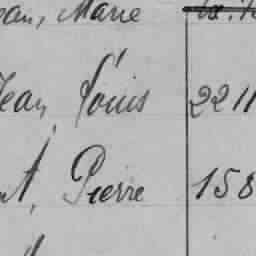 ean, Marie
Jean Louis 2211
nt, Pierre 158